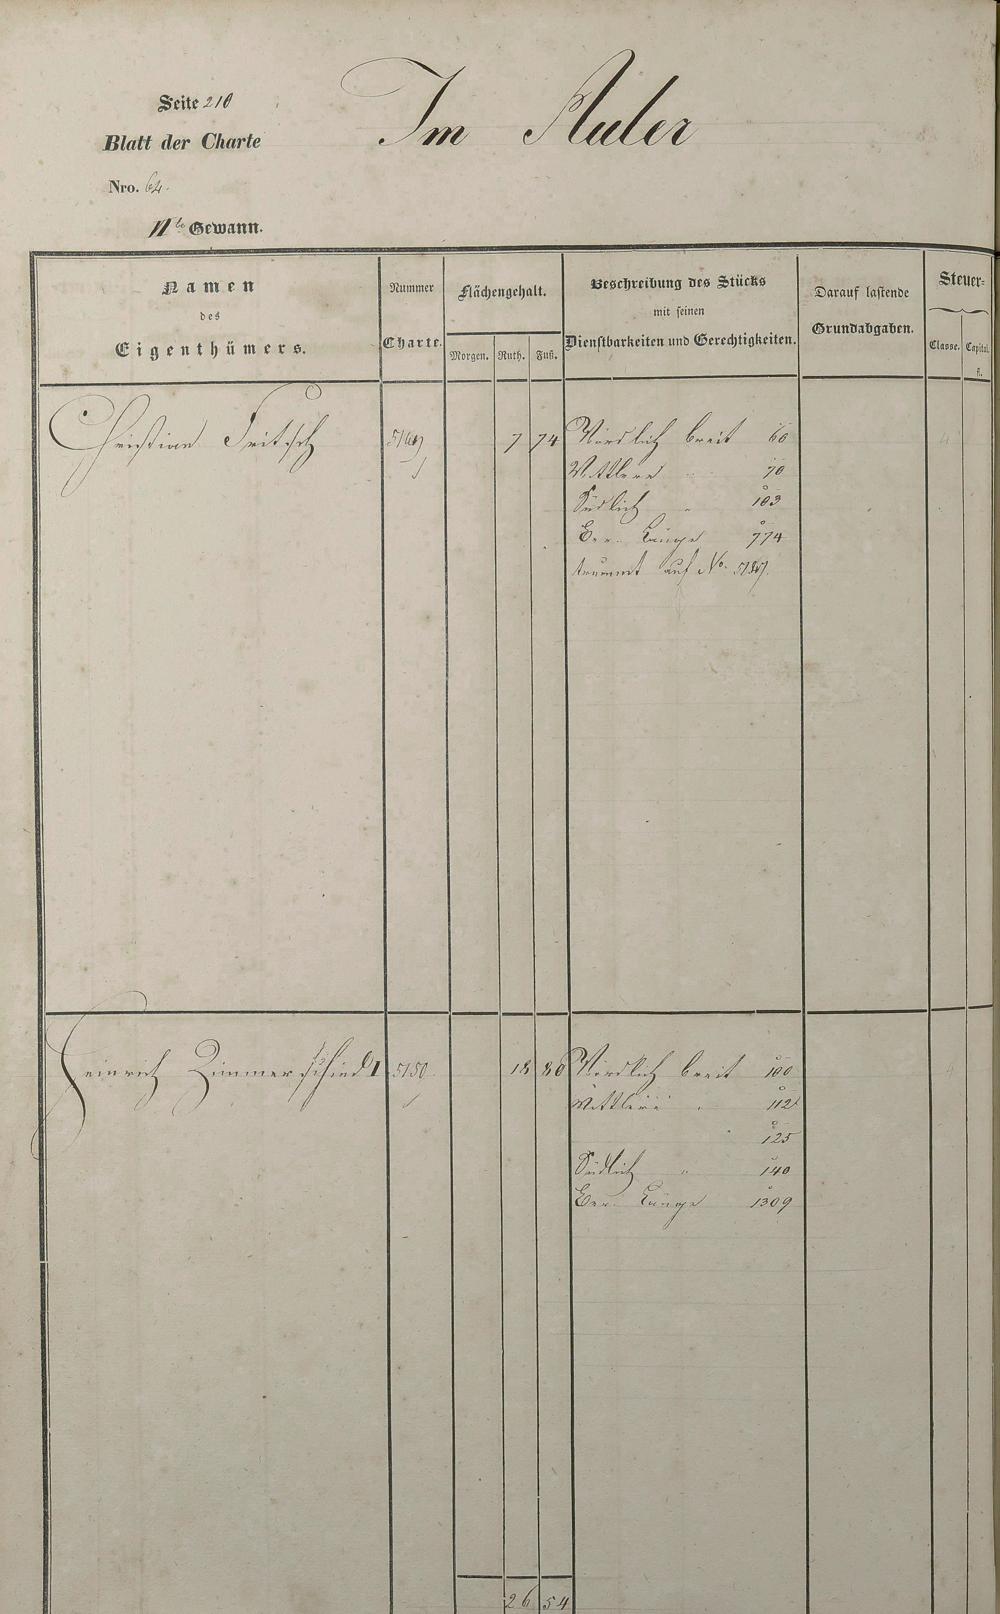 Im Auler
Seite 210
Blatt der Charte
Nro. 64.
IIte Gewann.
Namen
des
Eigenthümers.
Nummer
Charte.
Flächengehalt.
Morgen. Ruth. Fuß.
Beschreibung des Stücks
mit seinen
Dienstbarkeiten und Gerechtigkeiten.
Darauf lastende
Grundabgaben.
Steuer-
Classe. Capital.
fl.
Christian Fritsch 5149 7 74 Nördlich breit 60
Mittlere " 70
Südlich " 103
Länge 774
auf No.
Heinrich Zimmerschied I 5150 18 80 Nördlich breit 100
Mittlere " 112
" 125
Südlich " 140
Länge 1309
26 54